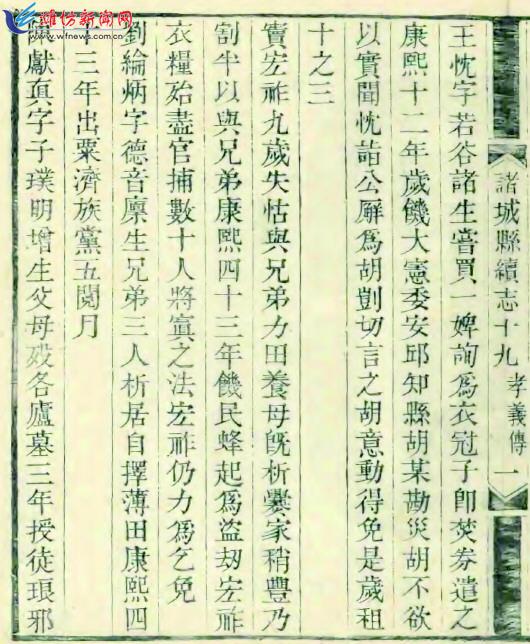 潍坊新闻网
www.wfnews.com.cn
諸城縣續志十九 孝義傳 一
王忱字若谷諸生嘗買一婢詢爲衣冠子卽焚券遣之
康熙十二年歲饑大憲委安邱知縣胡某勘災胡不欲
以實聞忱詣公廨爲胡剴切言之胡意動得免是歲租
十之三
竇宏祚九歲失怙與兄弟力田養母旣析爨家稍豐乃
割半以與兄弟康熙四十三年饑民蜂起爲盜刼宏祚
衣糧殆盡官捕數十人將寘之法宏祚仍力爲乞免
劉綸炳字德音廩生兄弟三人析居自擇薄田康熙四
十三年出粟濟族黨五閱月
獻眞字子璞明增生父母歿各廬墓三年授徒琅邪